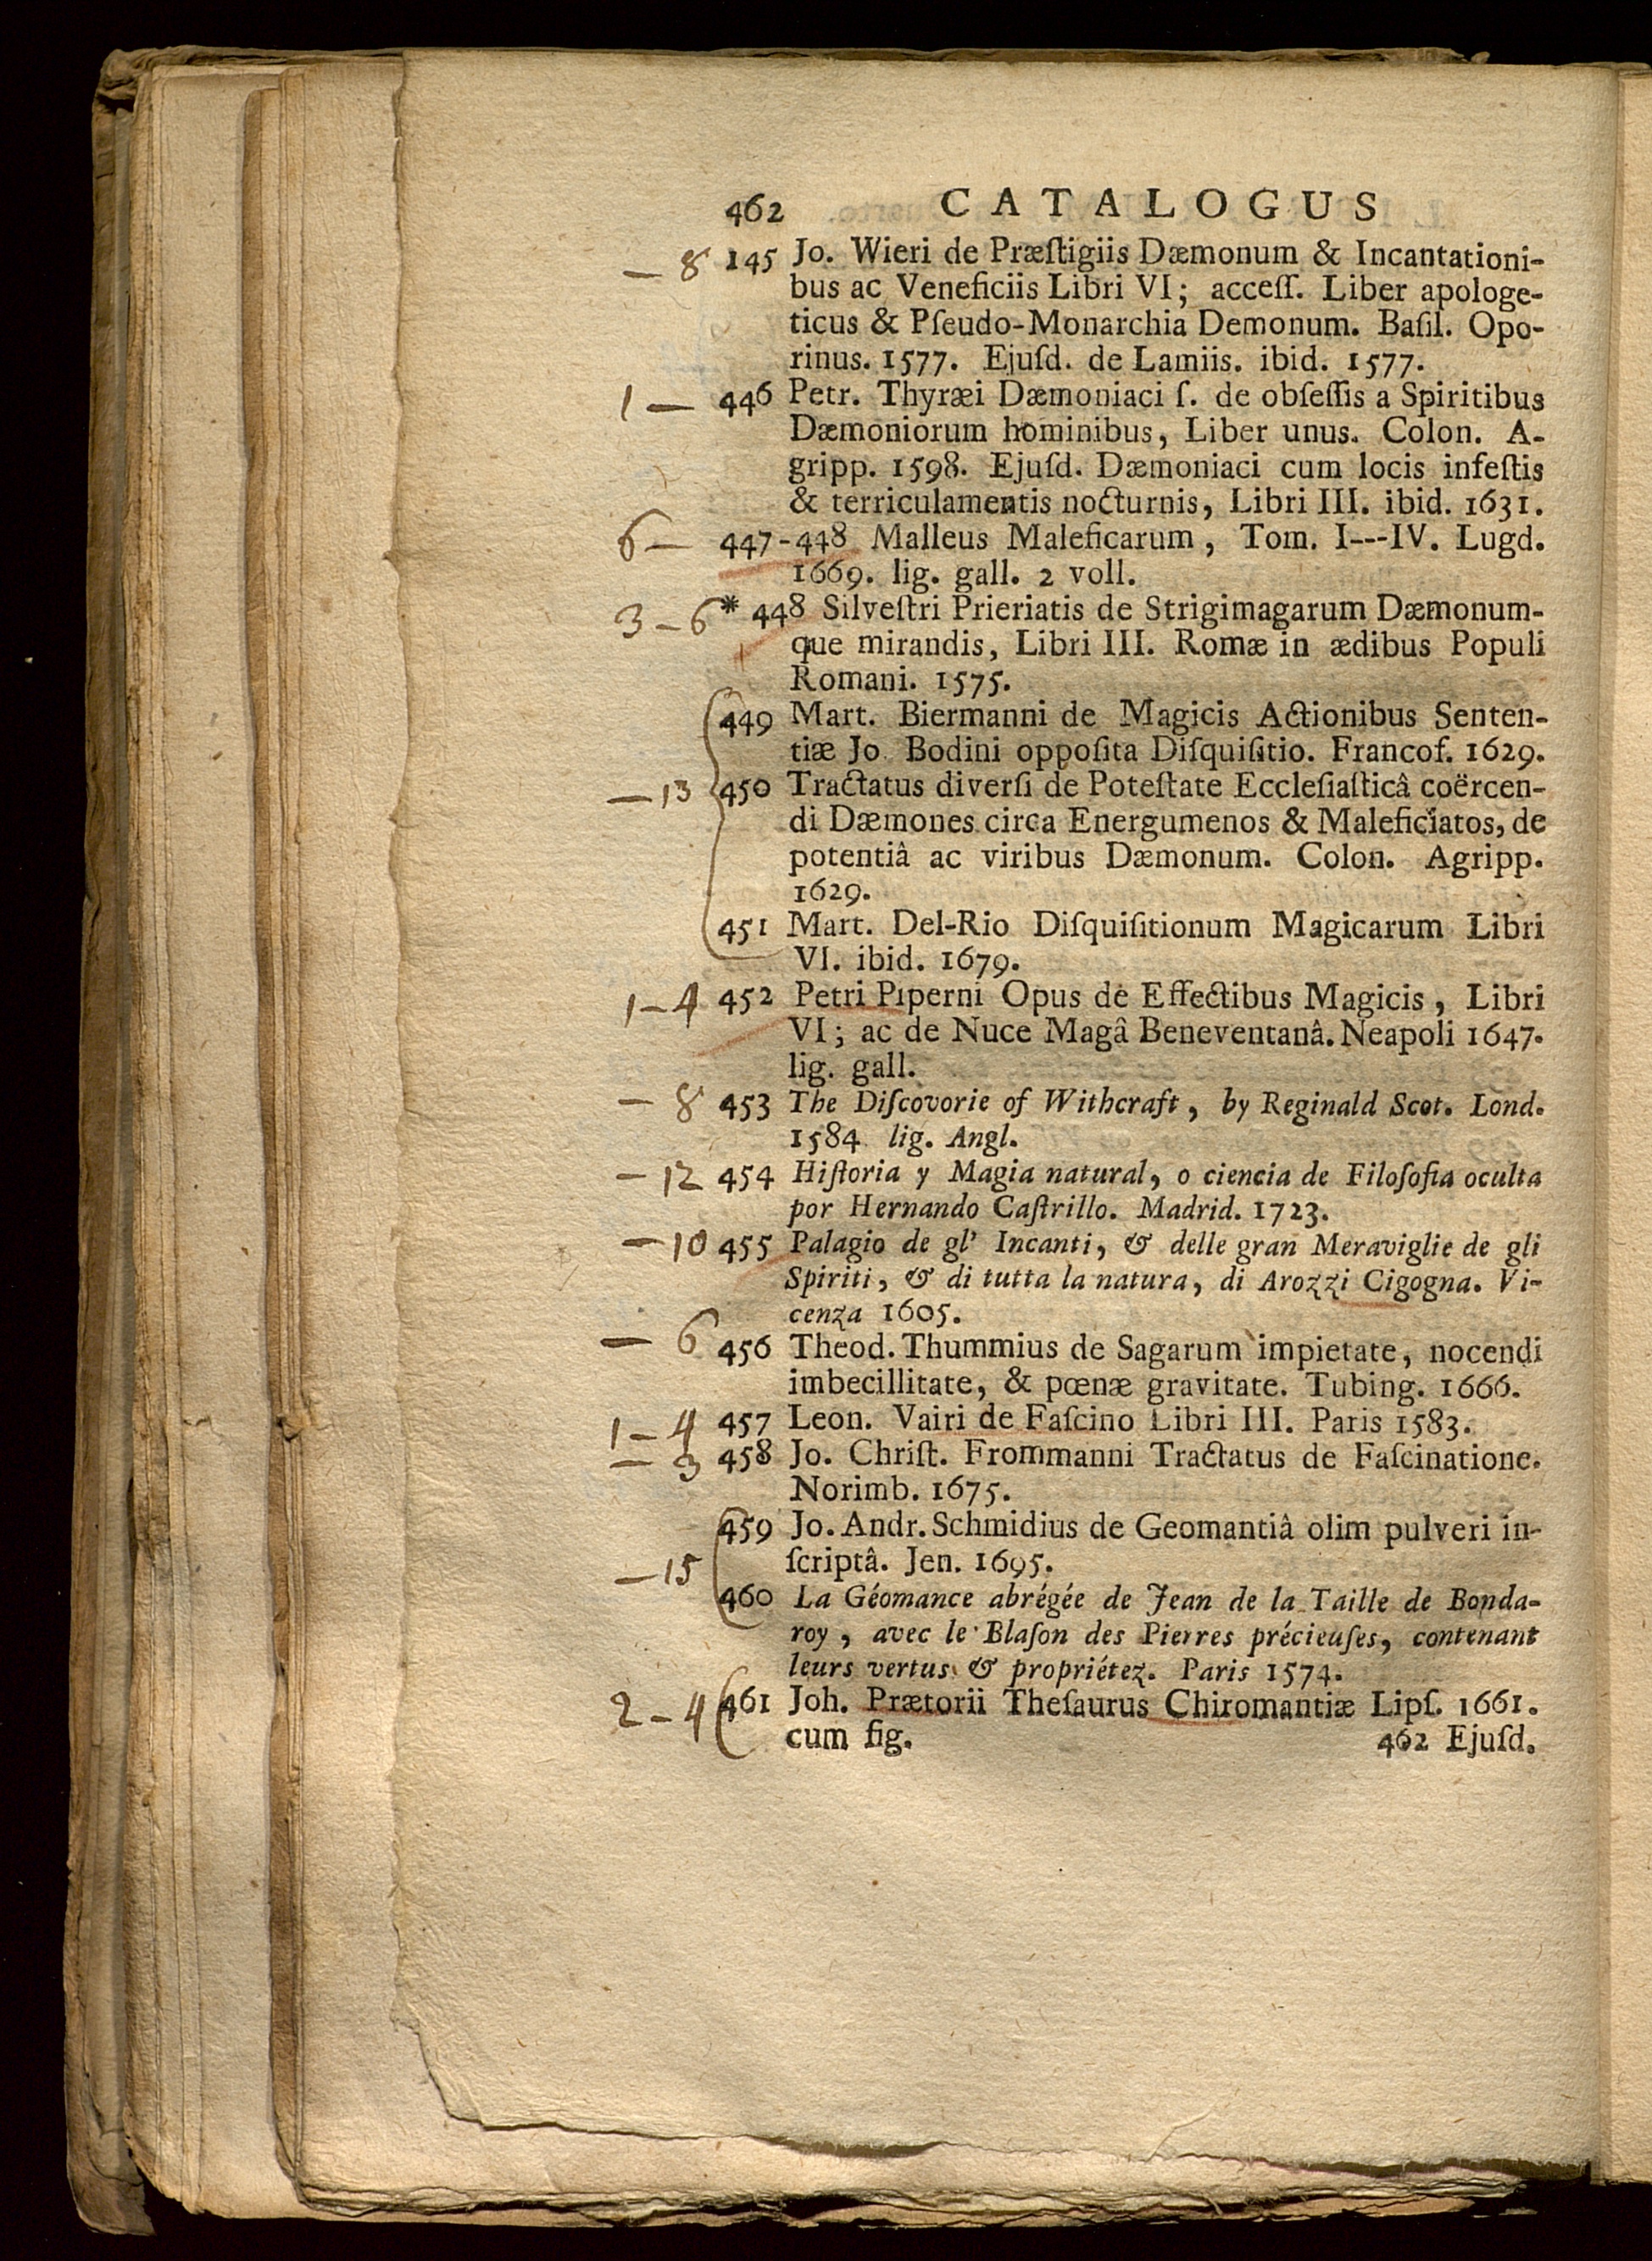 462 CATALOGUS
— 8 145 Jo. Wieri de Præſtigiis Dæmonum & Incantationi-
bus ac Veneficiis Libri VI; acceſſ. Liber apologe-
ticus & Pſeudo-Monarchia Demonum. Baſil. Opo-
rinus. 1577. Ejuſd. de Lamiis. ibid. 1577.
1 — 446 Petr. Thyræi Dæmoniaci ſ. de obſeſſis a Spiritibus
Dæmoniorum hominibus, Liber unus. Colon. A-
gripp. 1598. Ejuſd. Dæmoniaci cum locis infeſtis
& terriculamentis nocturnis, Libri III. ibid. 1631.
6 — 447-448 Malleus Maleficarum, Tom. I---IV. Lugd.
1669. lig. gall. 2 voll.
3 — 6 * 448 Silveſtri Prieriatis de Strigimagarum Dæmonum-
que mirandis, Libri III. Romæ in ædibus Populi
Romani. 1575.
449 Mart. Biermanni de Magicis Actionibus Senten-
tiæ Jo. Bodini oppoſita Diſquiſitio. Francof. 1629.
— 13 450 Tractatus diverſi de Poteſtate Eccleſiaſticâ coërcen-
di Dæmones circa Energumenos & Maleficiatos, de
potentiâ ac viribus Dæmonum. Colon. Agripp.
1629.
451 Mart. Del-Rio Diſquiſitionum Magicarum Libri
VI. ibid. 1679.
1 — 4 452 Petri Piperni Opus de Effectibus Magicis, Libri
VI; ac de Nuce Magâ Beneventanâ. Neapoli 1647.
lig. gall.
— 8 453 The Diſcovorie of Withcraft, by Reginald Scot. Lond.
1584 lig. Angl.
— 12 454 Hiſtoria y Magia natural, o ciencia de Filoſofia oculta
por Hernando Caſtrillo. Madrid. 1723.
— 10 455 Palagio de gl' Incanti, & delle gran Meraviglie de gli
Spiriti, & di tutta la natura, di Arozzi Cigogna. Vi-
cenza 1605.
— 6 456 Theod. Thummius de Sagarum impietate, nocendi
imbecillitate, & pœnæ gravitate. Tubing. 1666.
1 — 4 457 Leon. Vairi de Faſcino Libri III. Paris 1583.
— 3 458 Jo. Chriſt. Frommanni Tractatus de Faſcinatione.
Norimb. 1675.
459 Jo. Andr. Schmidius de Geomantiâ olim pulveri in-
— 15 ſcriptâ. Jen. 1695.
460 La Géomance abrégée de Jean de la Taille de Bonda-
roy, avec le Blaſon des Pierres précieuſes, contenant
leurs vertus & propriétez. Paris 1574.
2 — 4 461 Joh. Prætorii Theſaurus Chiromantiæ Lipſ. 1661.
cum fig. 462 Ejuſd.